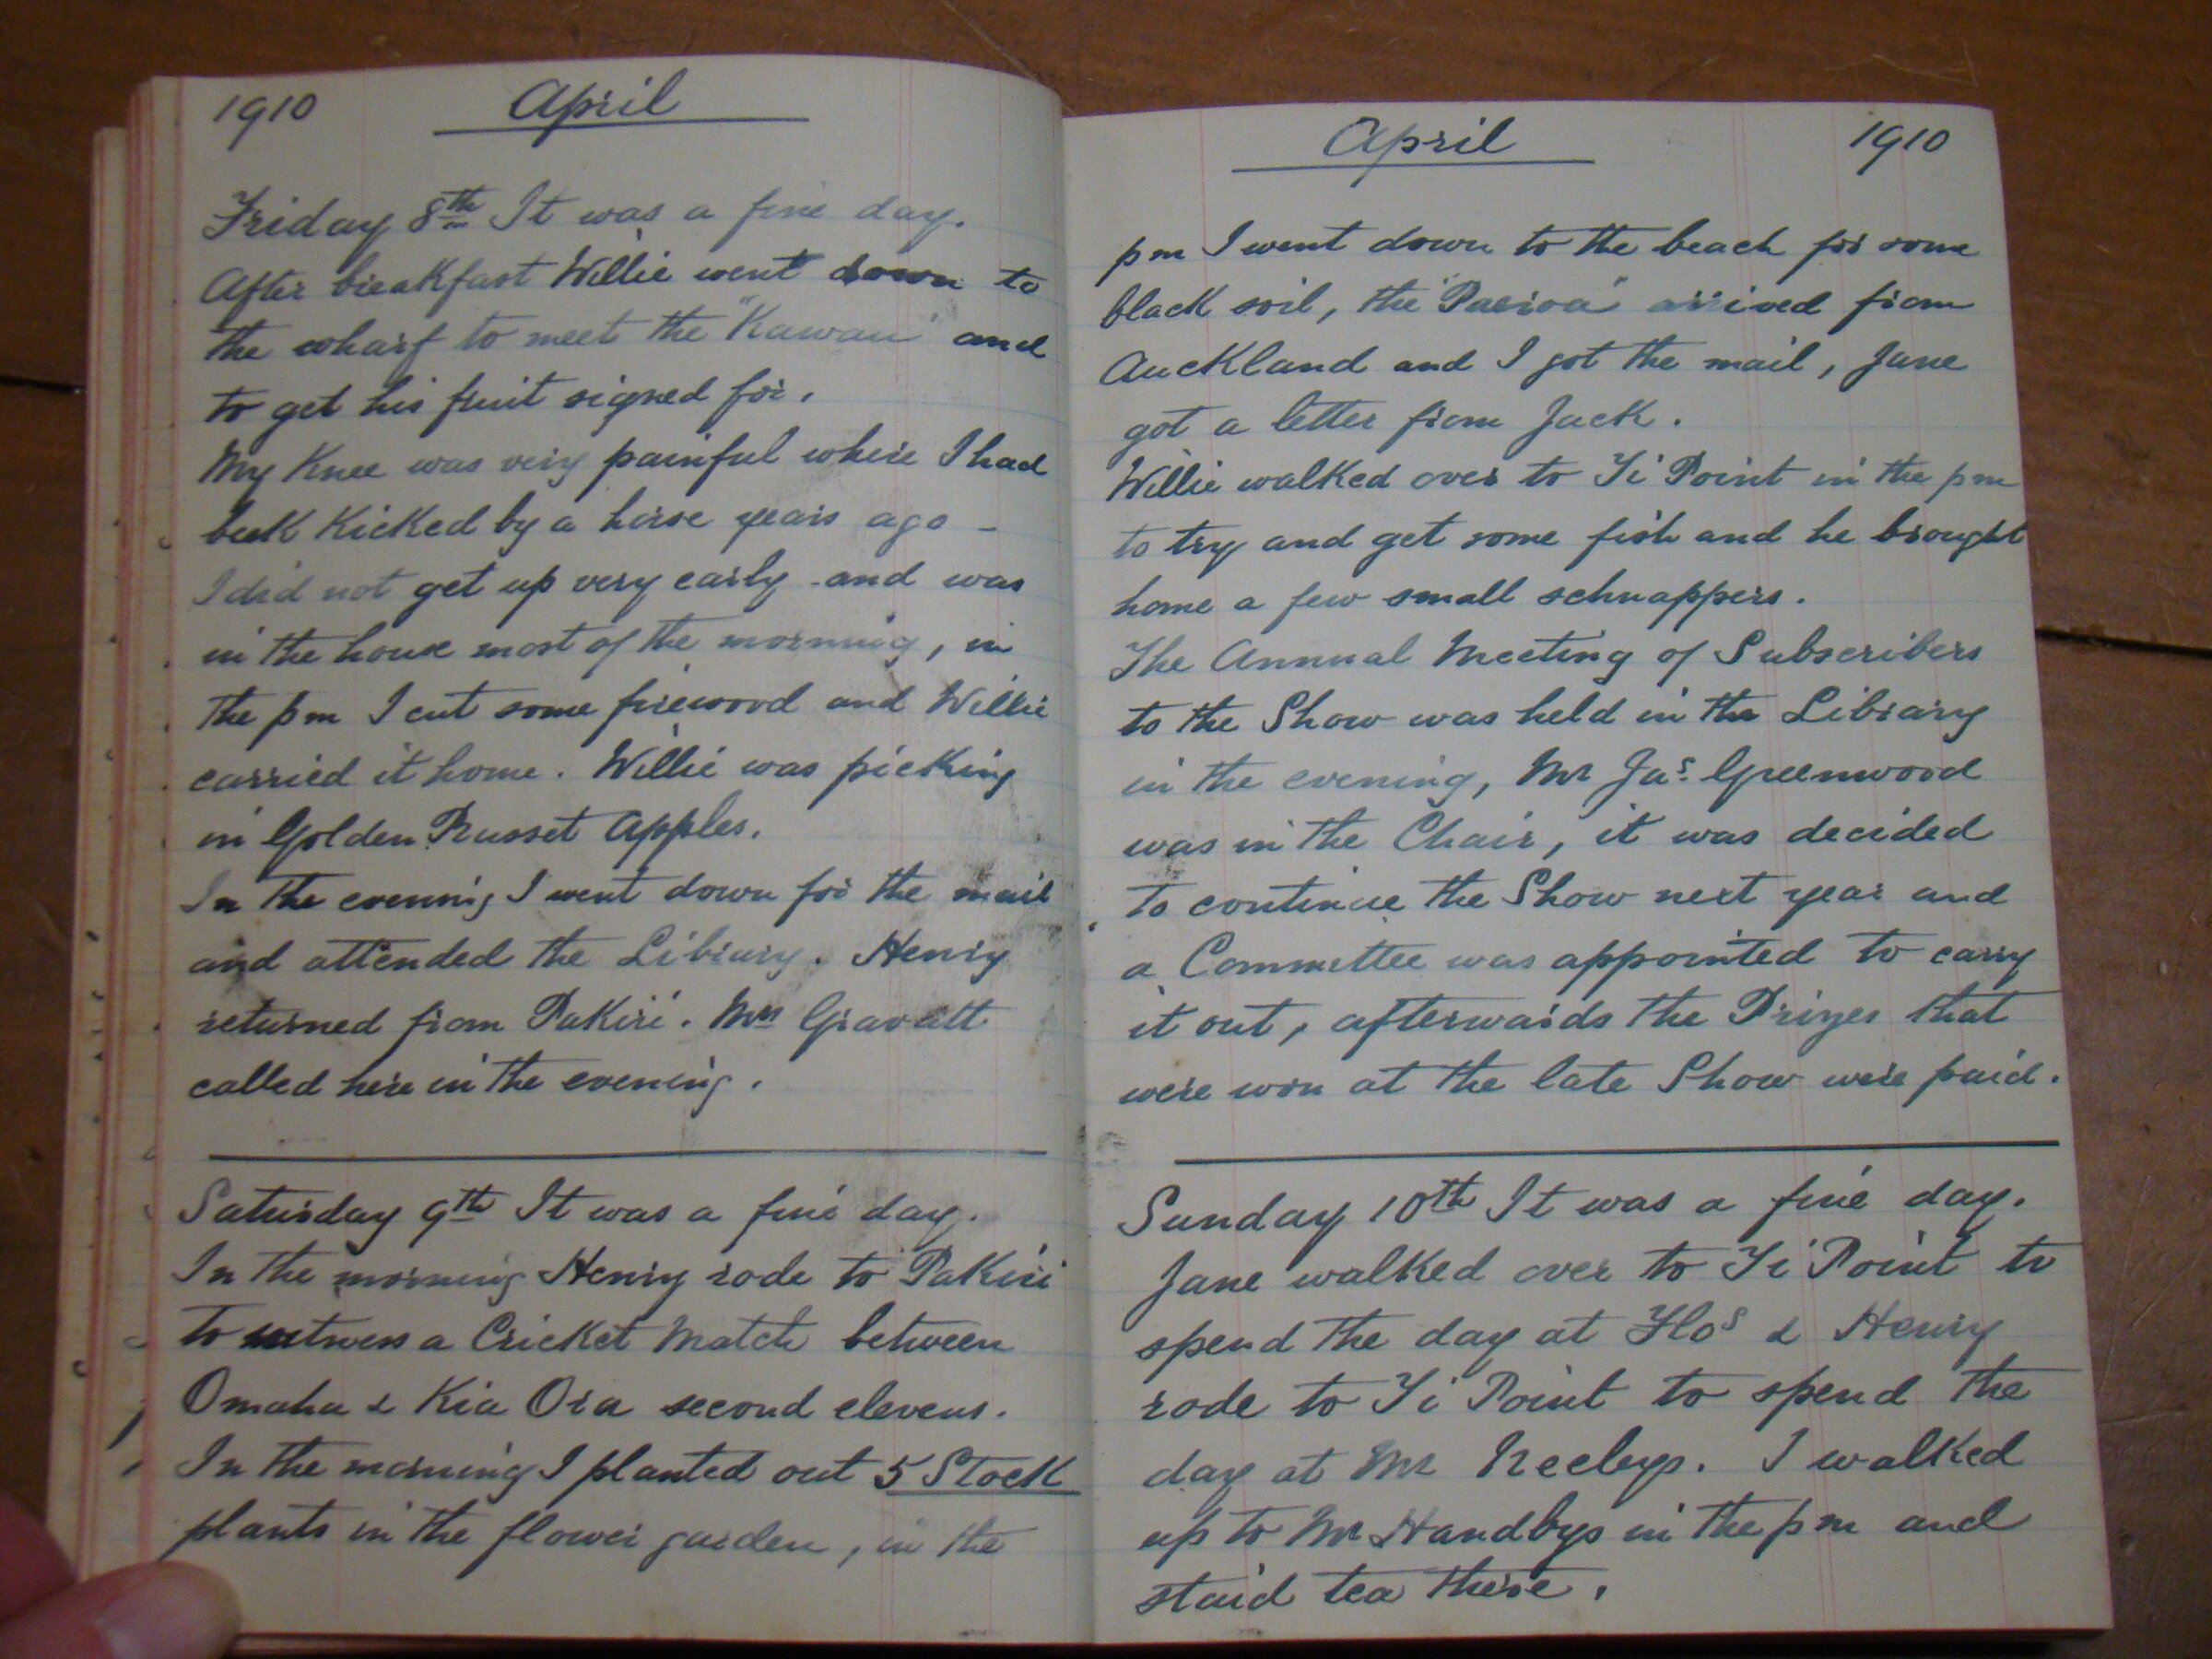 1910 April
Friday 8th It was a fine day.
After breakfast Willie went down to
the wharf to meet the "Kawau" and
to get his fruit signed for.
My Knee was very painful where I had
been Kicked by a horse years ago -
I did not get up very early and was
in the house most of the morning, in
the pm I cut some firewood and Willie
carried it home. Willie was picking
in Golden Russet Apples.
In the evening I went down for the mail
and attended the Library. Henry
returned from Pakiri. Mrs Gravatt
called here in the evening.
Saturday 9th It was a fine day.
In the morning Henry rode to Pakiri
to witness a Cricket Match between
Omaha & Kia Ora second elevens.
In the morning I planted out 5 Stock
plants in the flower garden, in the
April 1910
pm I went down to the beach for some
black soil, the "Paeroa" arrived from
Auckland and I got the mail, Jane
got a letter from Jack.
Willie walked over to Ti Point in the pm
to try and get some fish and he brought
home a few small schnappers.
The Annual Meeting of Subscribers
to the Show was held in the Library
in the evening, Mr Jas. Greenwood
was in the Chair, it was decided
to continue the Show next year and
a Committee was appointed to carry
it out, afterwards the Prizes that
were won at the late Show were paid.
Sunday 10th It was a fine day.
Jane walked over to Ti Point to
spend the day at Flos & Henry
rode to Ti Point to spend the
day at Mr Neelys. I walked
up to Mr Handbys in the pm and
staid tea there.